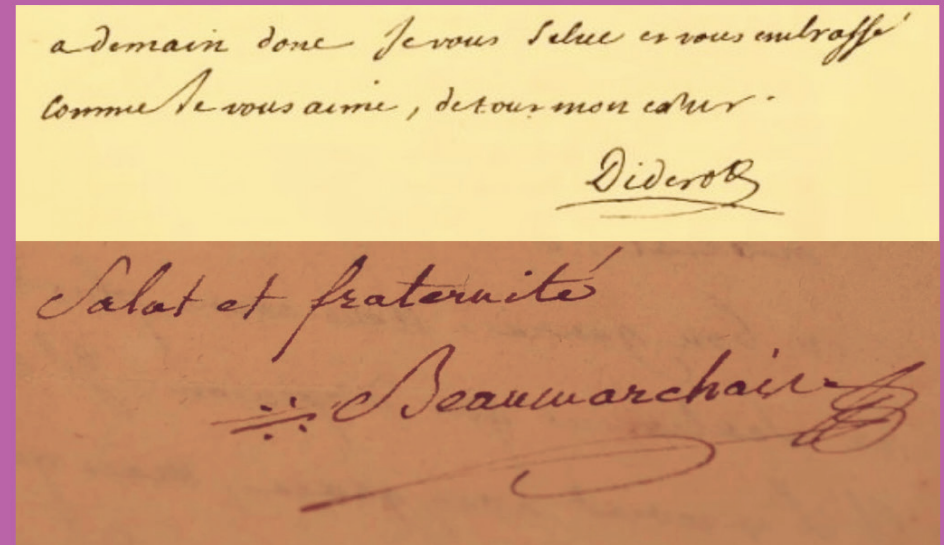 a demain donc Je vous Salue et vous embrasse
comme Je vous aime, de tout mon cœur.
Diderot
Salut et fraternité
Beaumarchais